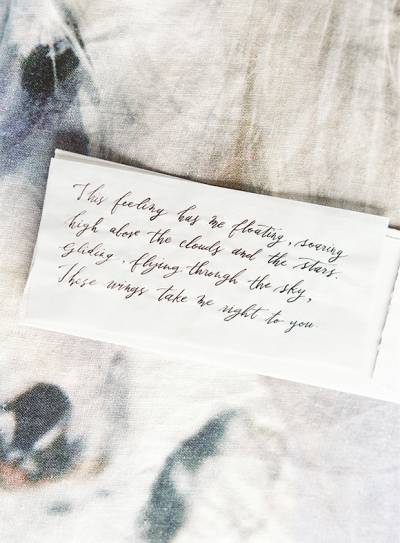 This feeling has me floating, soaring
high above the clouds and the stars.
Gliding, flying through the sky,
These wings take me right to you.